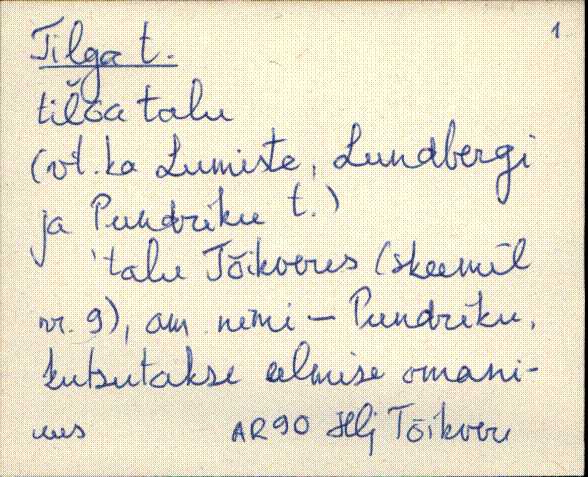 1
Tilga t.
tilGa talu
(vt. ka Lumiste, Lundbergi
ja Pundriku t.)
'talu Tõikveres (skeemil
nr. 9), am. nimi – Pundriku,
kutsutakse eelmise omani-
AR90 Hlj Tõikvere